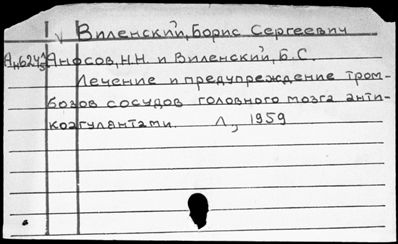 Виленский, Борис Сергеевич
Аносов, Н.Н. и Виленский, Б.С.
Лечение и предупреждение тром-
бозов сосудов головного мозга анти-
коагулянтами. Л., 1959